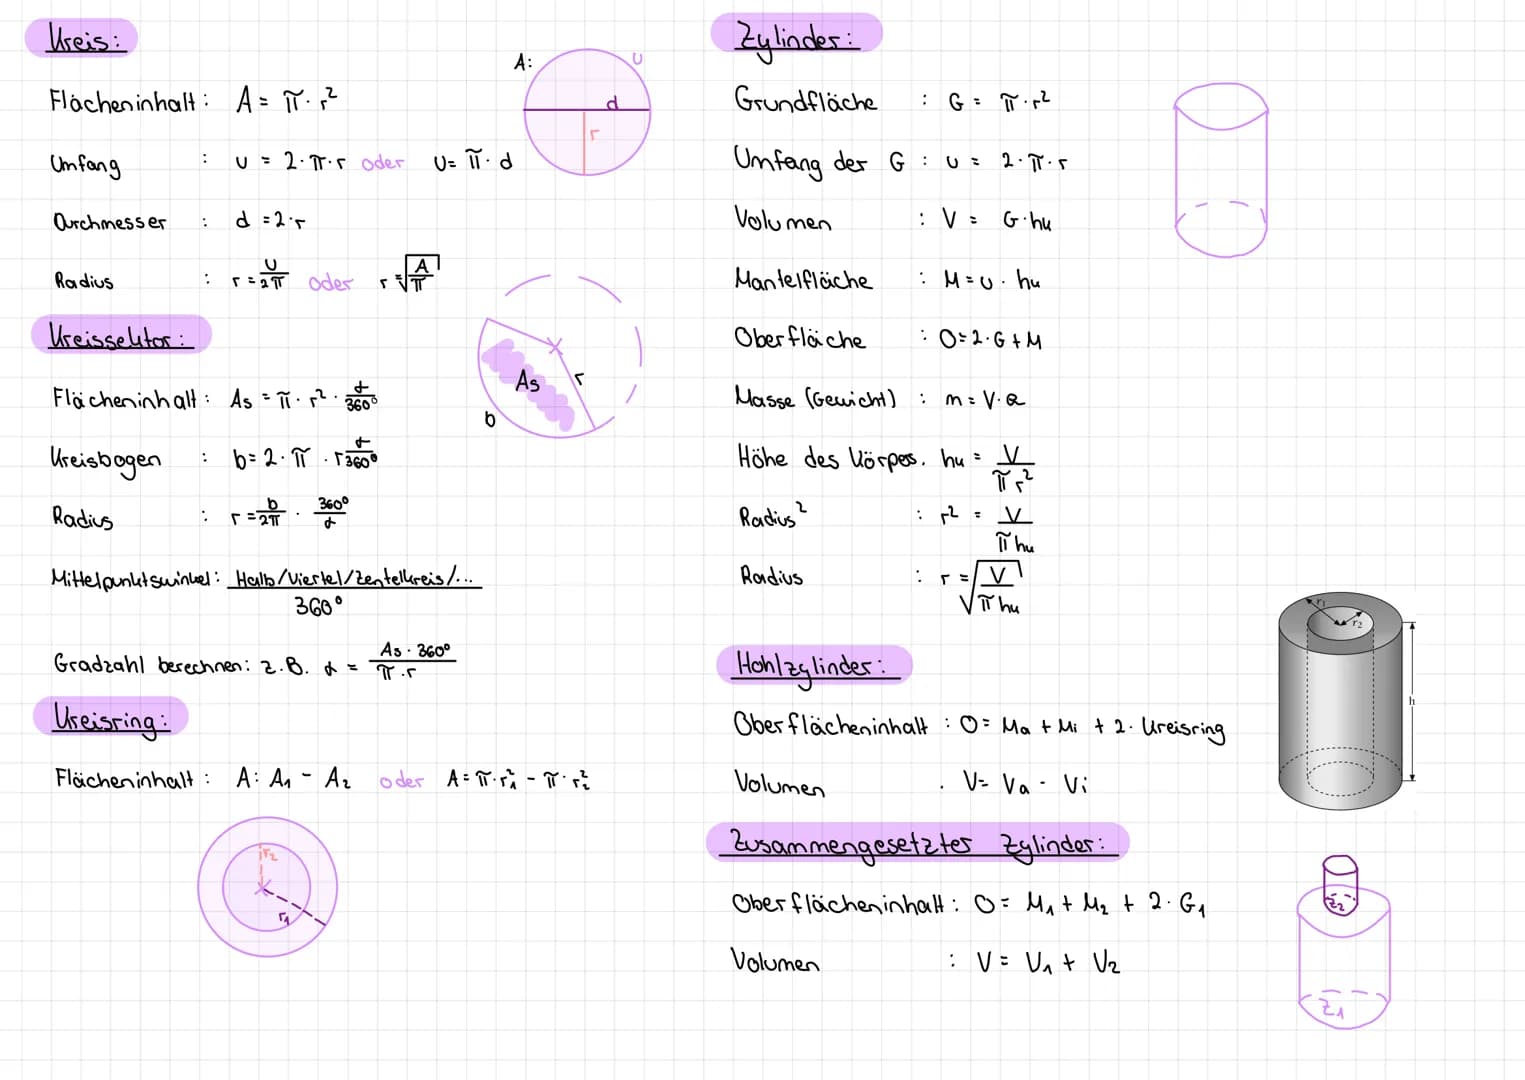 Kreis:
A:
U
d
r
Flächeninhalt: A = π · r²
Umfang : u = 2 · π · r oder U = π · d
Durchmesser : d = 2 · r
Radius : r = U/2π oder r = √(A/π)
Kreissektor:
As
r
b
Flächeninhalt: As = π · r² · α/360°
Kreisbogen : b = 2 · π · r α/360°
Radius : r = b/2π · 360°/α
Mittelpunktswinkel: Halb/Viertel/Zentelkreis/...
360°
Gradzahl berechnen: z.B. α = As · 360°/π · r
Kreisring:
Flächeninhalt: A: A₁ - A₂ oder A = π · r₁² - π · r₂²
r₂
r₁
Zylinder:
Grundfläche : G = π · r²
Umfang der G : u = 2 · π · r
Volumen : V = G · hu
Mantelfläche : M = u · hu
Oberfläche : O = 2 · G + M
Masse (Gewicht) : m = V · ϱ
Höhe des Körpes. hu = V/π r²
Radius² : r² = V/π hu
Radius : r = √(V/π hu)
Hohlzylinder:
r1
r2
h
Oberflächeninhalt : O = Ma + Mi + 2 · Kreisring
Volumen . V = Va - Vi
Zusammengesetzter Zylinder:
Oberflächeninhalt: O = M₁ + M₂ + 2 · G₁
Volumen : V = V₁ + V₂
Z2
Z1